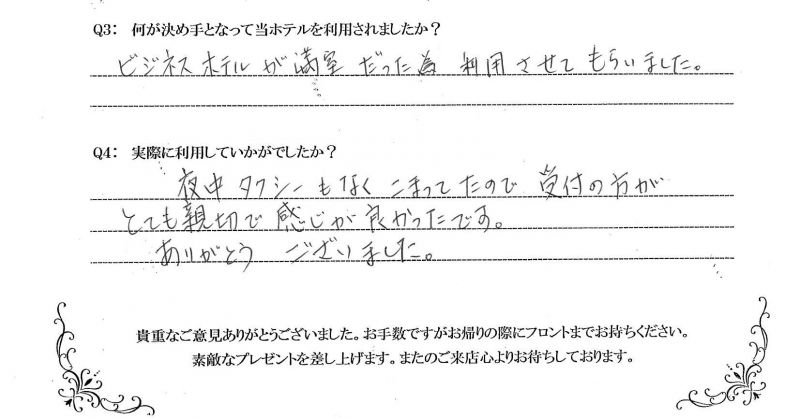 Q3： 何が決め手となって当ホテルを利用されましたか？
ビジネスホテルが満室だった為 利用させてもらいました。
Q4： 実際に利用していかがでしたか？
夜中タクシーもなくこまってたので 受付の方が
とても親切で感じが良かったです。
ありがとう ございました。
貴重なご意見ありがとうございました。お手数ですがお帰りの際にフロントまでお持ちください。
素敵なプレゼントを差し上げます。またのご来店心よりお待ちしております。